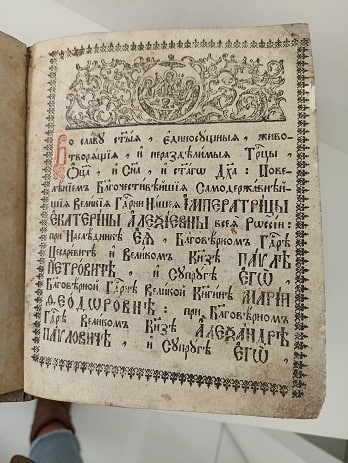 Во славу ст҃ыѧ, единосꙋщныѧ, живо-
творѧщїѧ, и нераздѣлимыѧ Трⷪ҇цы,
Ѻц҃а, и Сн҃а, и ст҃агѡ Дх҃а: Пове-
лѣнїемъ Благочестивѣйшїѧ Самодержавнѣй-
шїѧ Великїѧ Гдⷭ҇рни Нашеѧ ІМПЕРАТРИЦЫ
ЕКАТЕРИНЫ АЛЕѮІЕВНЫ всеѧ Рѡссїи:
при Наслѣдникѣ ЕѦ, Благовѣрномъ Гдⷭ҇рѣ
Цесаревичѣ и Великомъ Кн҃зѣ ПАѴЛѢ
ПЕТРОВИЧѢ, и Сꙋпрꙋгѣ ЕГѠ,
Благовѣрной Гдⷭ҇рнѣ Великой Кнѧгинѣ МАРІИ
ѲЕОДѠРОВНѢ: при Благовѣрномъ
Гдⷭ҇рѣ Великомъ Кн҃зѣ АЛЕѮАНДРѢ
ПАѴЛОВИЧѢ, и Сꙋпрꙋгѣ ЕГѠ,